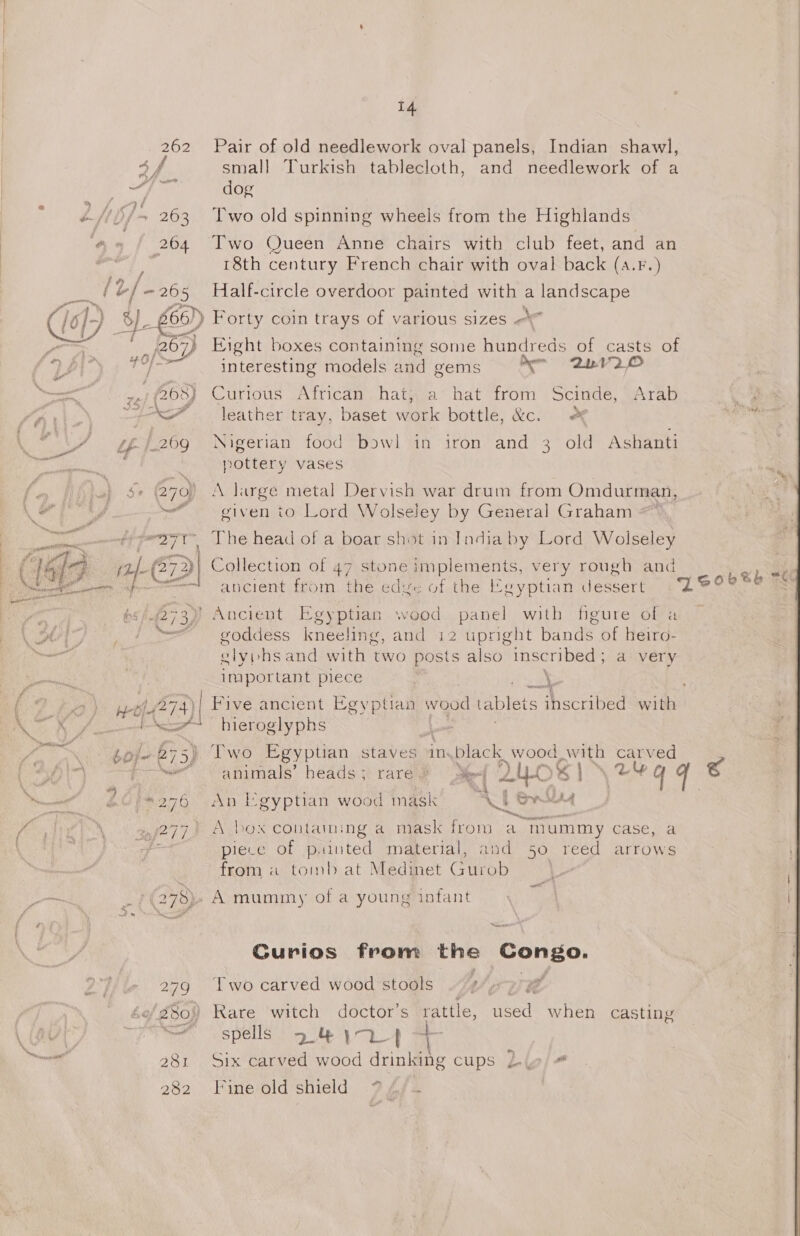 14
262 Pair of old needlework oval panels, Indian shawl,
small Turkish tablecloth, and needlework of a
dog
263 Two old spinning wheels from the Highlands
264 Two Queen Anne chairs with club feet, and an
18th century French chair with oval back (A.F.)
265 Half-circle overdoor painted with a landscape
266 Forty coin trays of various sizes
267 Eight boxes containing some hundreds of casts of
interesting models and gems
268 Curious African hat, a hat from Scinde, Arab
leather tray, baset work bottle, &c.
269 Nigerian food bowl in iron and 3 old Ashanti
pottery vases
270 A large metal Dervish war drum from Omdurman,
given to Lord Wolseley by General Graham
271 The head of a boar shot in India by Lord Wolseley
272 Collection of 47 stone implements, very rough and
ancient from the edge of the Egyptian dessert
273 Ancient Egyptian wood panel with figure of a
goddess kneeling, and 12 upright bands of heiro-
glyphs and with two posts also inscribed; a very
important piece
274 Five ancient Egyptian wood tablets inscribed with
hieroglyphs
275 Two Egyptian staves in black wood with carved
animals' heads; rare
276 An Egyptian wood mask
277 A box containing a mask from a mummy case, a
piece of painted material, and 50 reed arrows
from a tomb at Medinet Gurob
278 A mummy of a young infant
Curios from the Congo.
279 Two carved wood stools
280 Rare witch doctor's rattle, used when casting
spells
281 Six carved wood drinking cups
282 Fine old shield